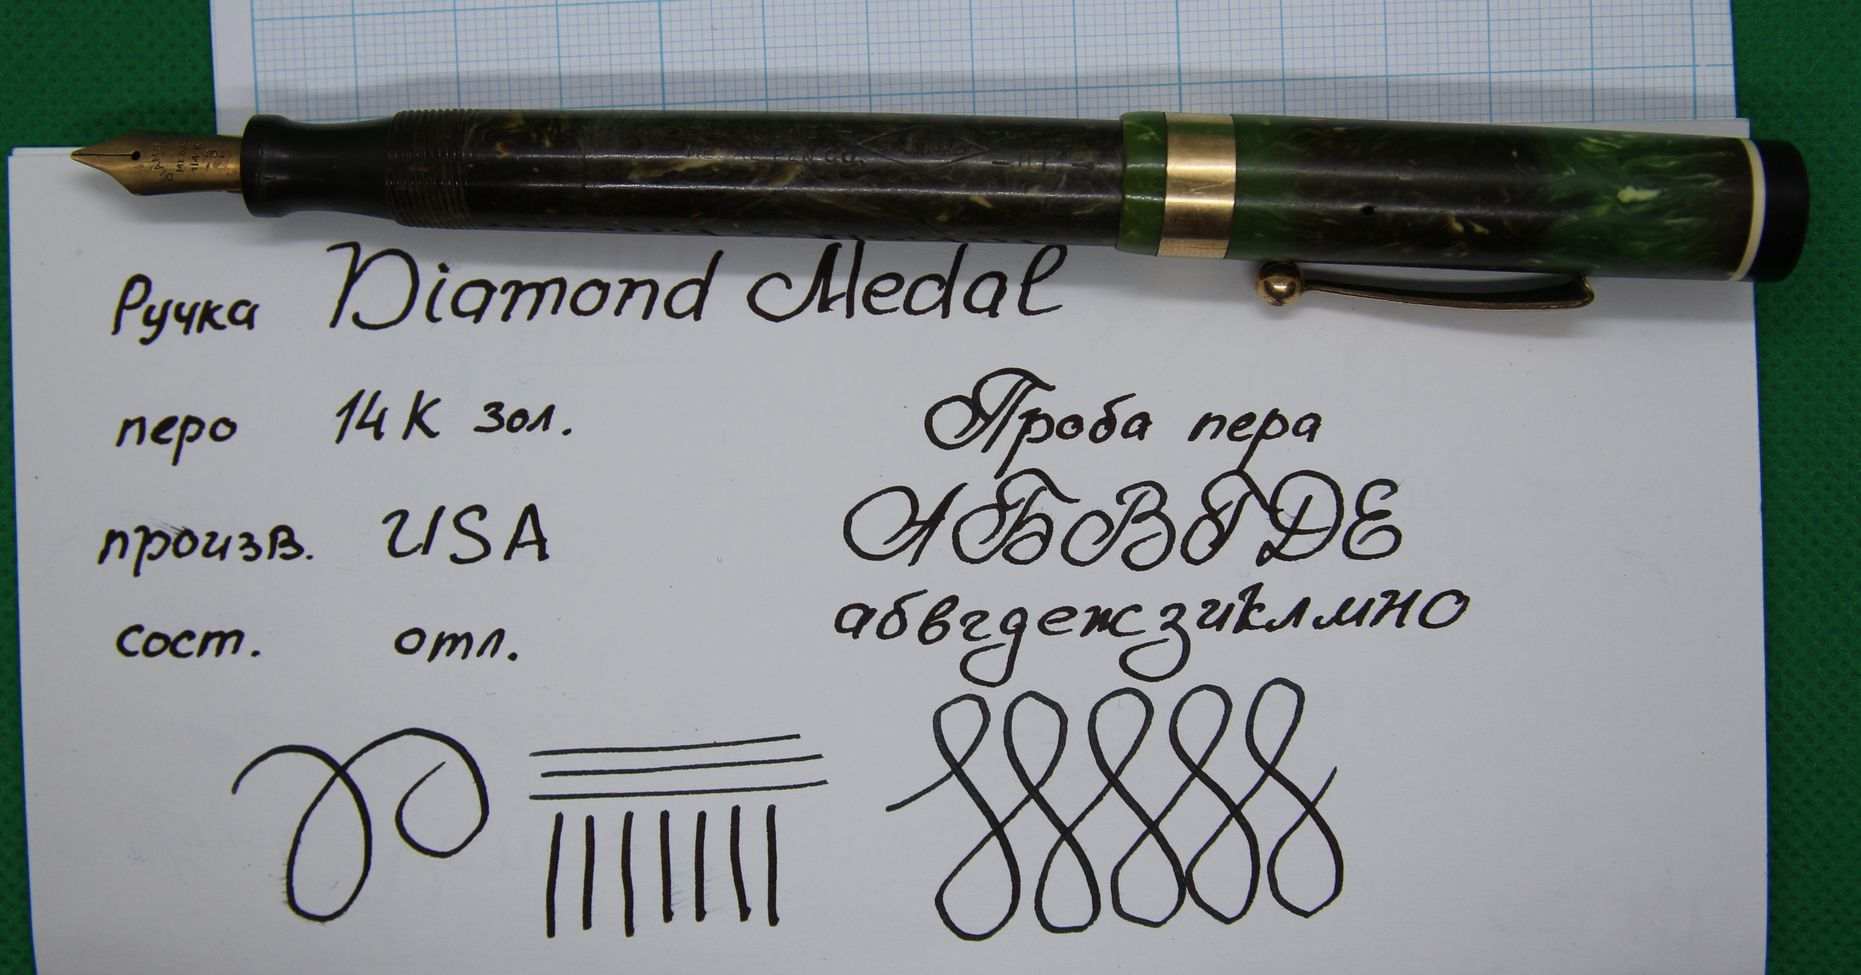 PEN CO.
Ручка Diamond Medal
перо 14К зол.
произв. USA
сост. отл.
Проба пера
АБВГДЕ
абвгдежзиклмно